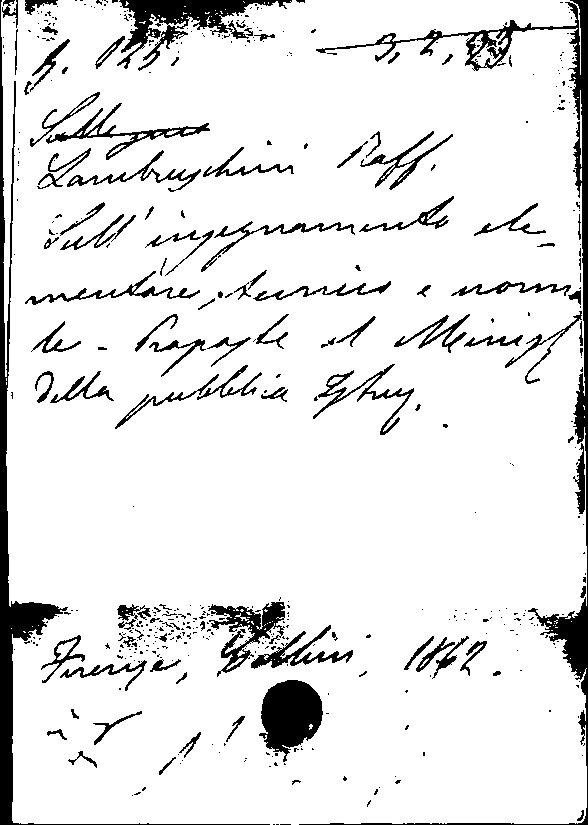 B. 125. 3, 2, 23
Lambruschini Raff.
Sull'insegnamento ele-
mentare, tecnico e norma
le - Proposte al Minist
della pubblica Istruz.
Firenze, Cellini, 1862.